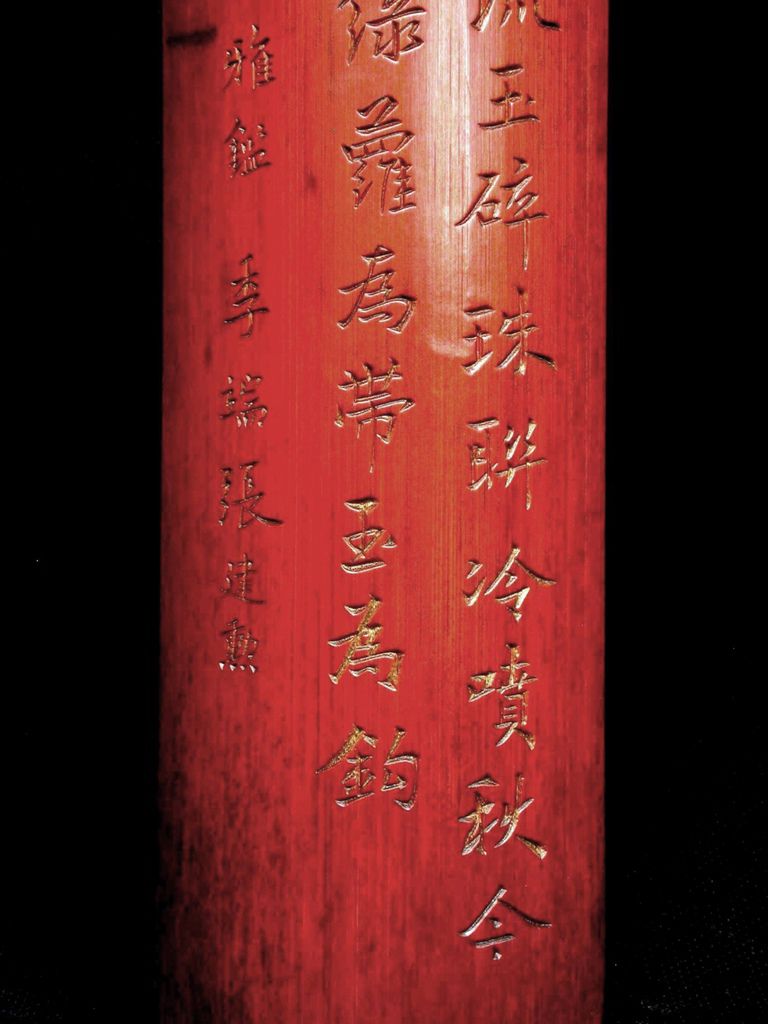 玉碎珠聯冷噴秋今
綠蘿為帶玉為鈎
雅鑑 季端張建勳